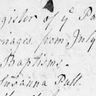 gister of ye Pa
riages from July
Baptisms.
Susanna Pall.